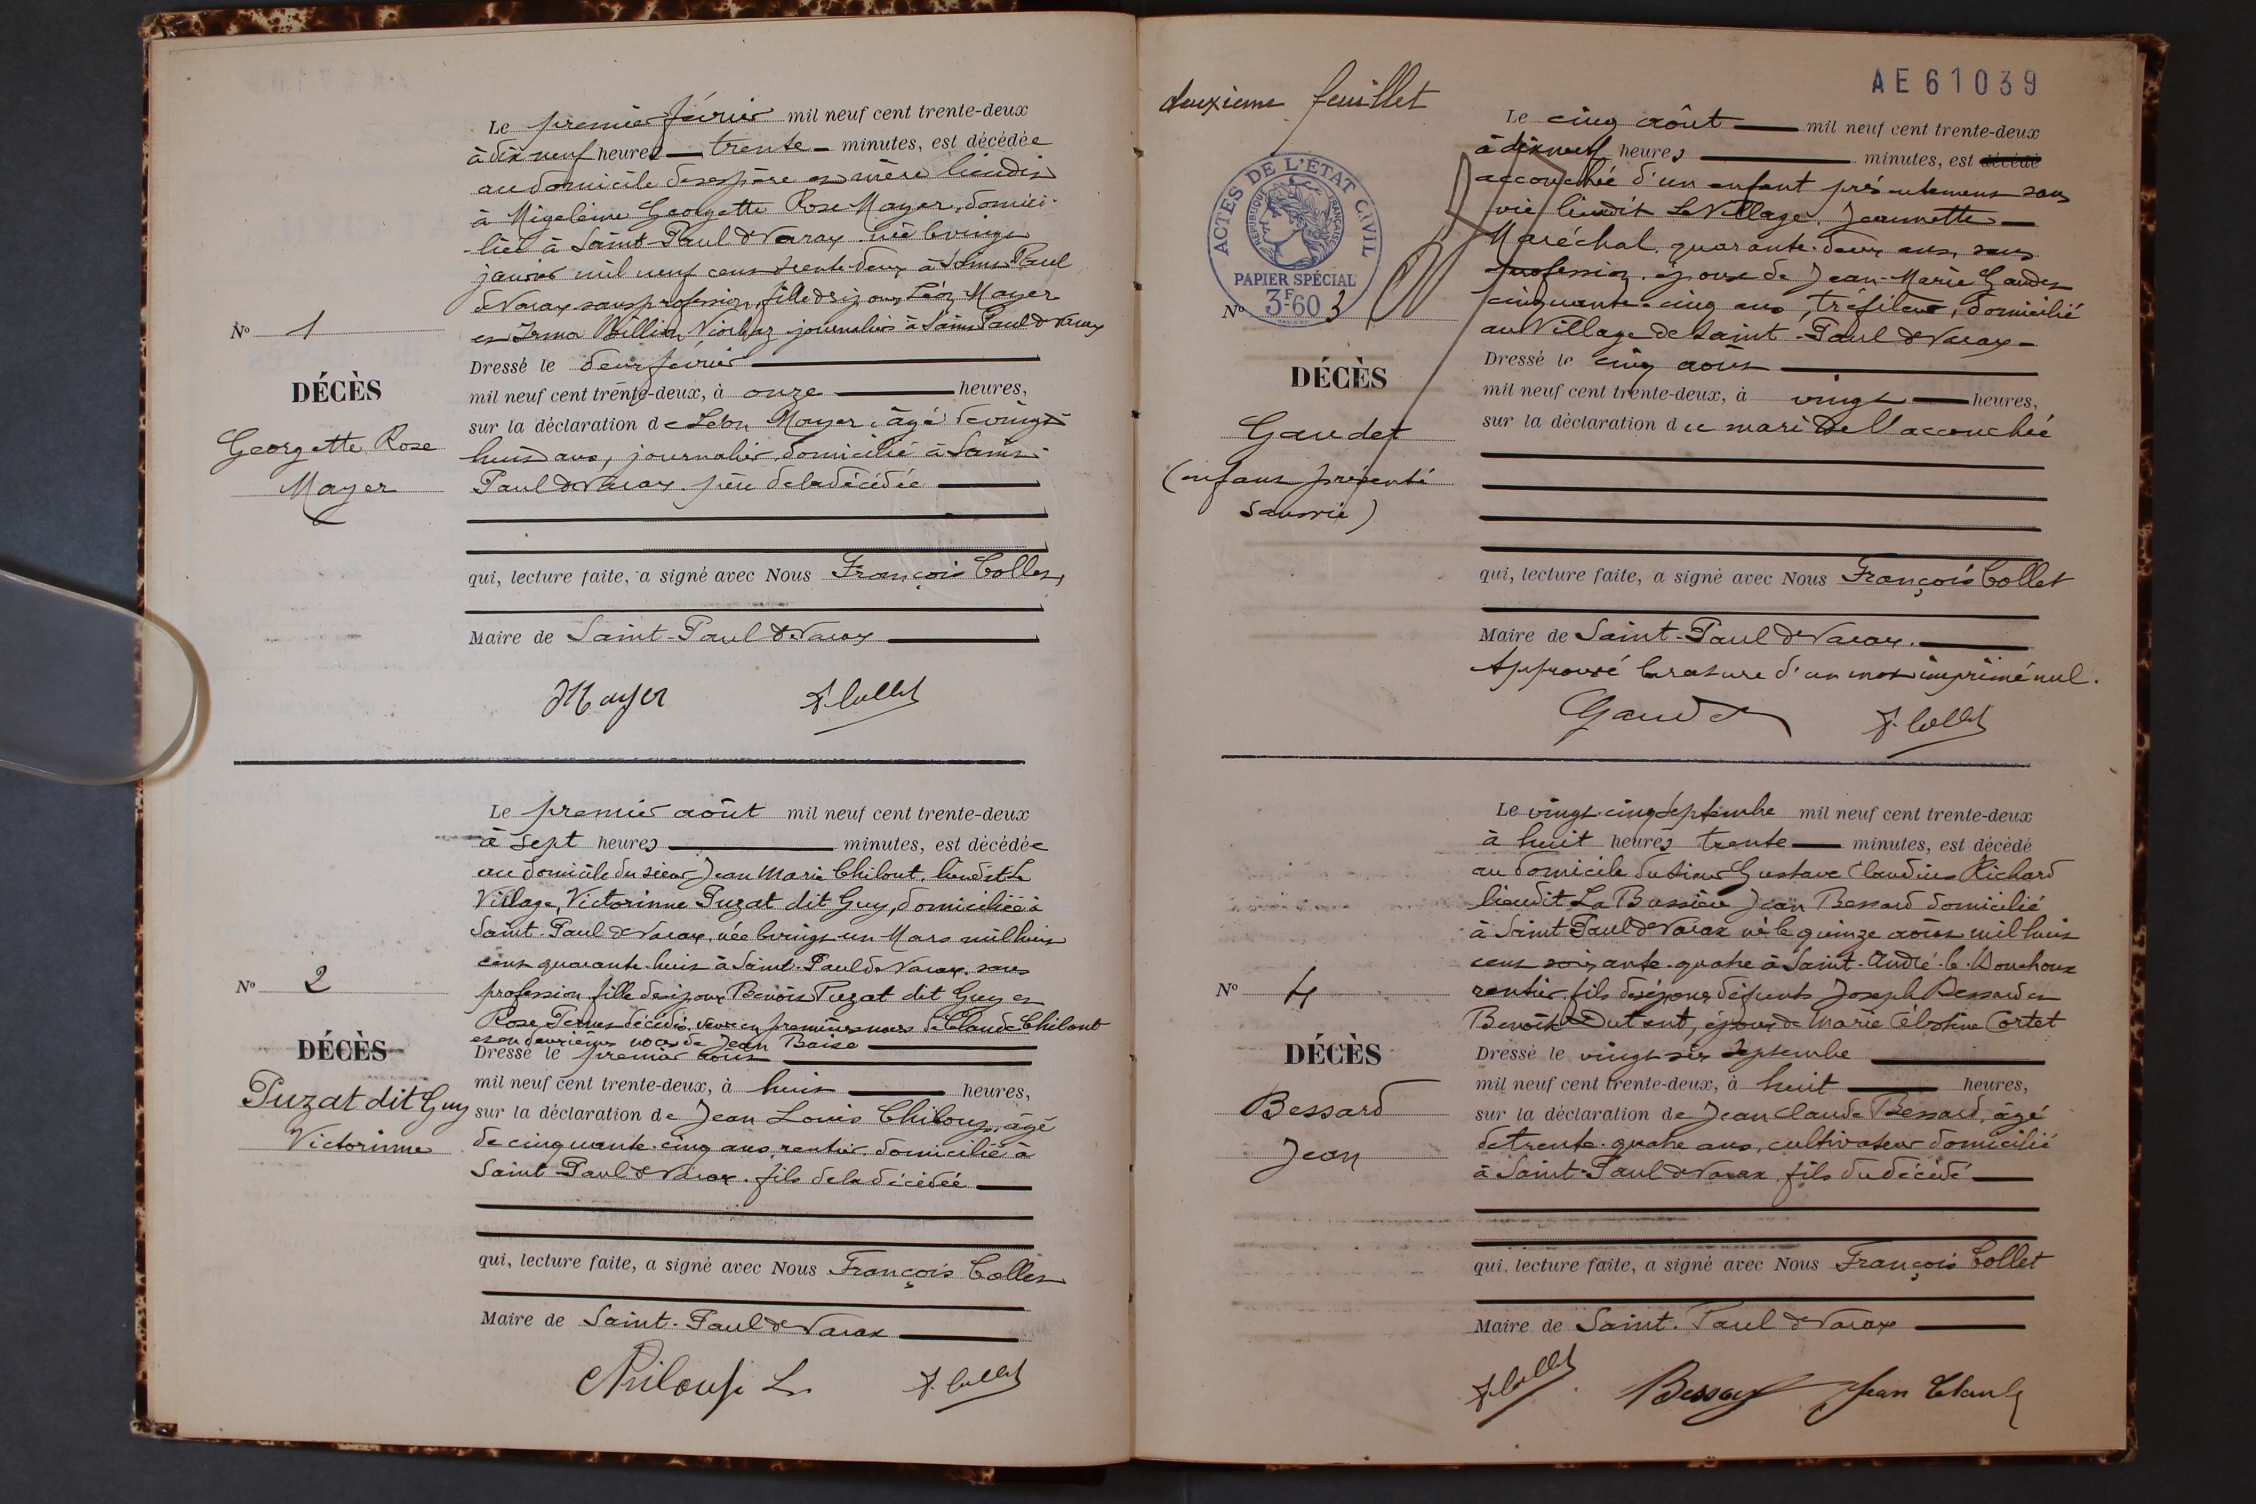 Le premier février mil neuf cent trente-deux
à dix neuf heures trente minutes, est décédée
au domicile de ses père et mère lieudit
à Georgette Rose Mayer, domici-
-liée à Saint-Paul de Varax née le vingt
janvier mil neuf cent trente deux à Saint Paul
de Varax sans profession, fille des époux Léon Mayer
et Irma journalier à Saint Paul de Varax
Nº 1
DÉCÈS
Georgette Rose
Mayer
Dressé le deux février
mil neuf cent trente-deux, à onze heures,
sur la déclaration de Léon Mayer, âgé de vingt
huit ans, journalier domicilié à Saint-
Paul de Varax père de la décédée
qui, lecture faite, a signé avec Nous François Collet,
Maire de Saint-Paul de Varax
Mayer F. Collet
Le premier août mil neuf cent trente-deux
à sept heures minutes, est décédée
au domicile du sieur Jean Marie Chilout, lieudit le
Village, Victorinne Puzat dit Guy, domiciliée à
Saint-Paul de Varax, née le vingt un Mars mil huit
cent quarante-huit à Saint-Paul de Varax, sans
profession fille des époux Benoît Puzat dit Guy et
Rose décédés, veuve en premières noces de Claude Chilout
et en deuxièmes noces de Jean Baise
Nº 2
DÉCÈS
Puzat dit Guy
Victorinne
Dressé le premier août
mil neuf cent trente-deux, à huit heures,
sur la déclaration de Jean Louis Chilout, âgé
de cinquante-cinq ans, rentier, domicilié à
Saint-Paul de Varax, fils de la décédée
qui, lecture faite, a signé avec Nous François Collet
Maire de Saint-Paul de Varax
L. F. Collet
deuxieme feuillet
AE61039
ACTES DE L'ÉTAT CIVIL
RÉPUBLIQUE FRANÇAISE
PAPIER SPÉCIAL
3F60
Le cinq août mil neuf cent trente-deux
à dix neuf heures minutes, est décédé
accouchée d'un enfant présentement sans
vie lieudit Le Village, Jeannette
Maréchal, quarante-deux ans, sans
profession, épouse de Jean-Marie Gaudet
cinquante-cinq ans, tréfileur, domicilié
au Village de Saint-Paul de Varax
Nº 3
DÉCÈS
Gaudet
(enfant présenté
sans vie)
Dressé le cinq août
mil neuf cent trente-deux, à vingt heures,
sur la déclaration du mari de l'accouchée
qui, lecture faite, a signé avec Nous François Collet
Maire de Saint-Paul de Varax.
Approuvé la rature d'un mot imprimé nul.
Gaudet F. Collet
Le vingt-cinq septembre mil neuf cent trente-deux
à huit heures trente minutes, est décédé
au domicile du sieur Gustave Claudius Richard
lieudit La Bussière Jean Bessard domicilié
à Saint Paul de Varax né le quinze août mil huit
cent soixante-quatre à Saint-André-le-Bouchoux
rentier, fils des époux défunts Joseph Bessard et
Benoîte Dutent, époux de Marie Célestine Cortet
Nº 4
DÉCÈS
Bessard
Jean
Dressé le vingt-six septembre
mil neuf cent trente-deux, à huit heures,
sur la déclaration de Jean Claude Bessard, âgé
de trente-quatre ans, cultivateur domicilié
à Saint-Paul de Varax, fils du décédé
qui, lecture faite, a signé avec Nous François Collet
Maire de Saint-Paul de Varax
F. Collet Bessard Jean Claude